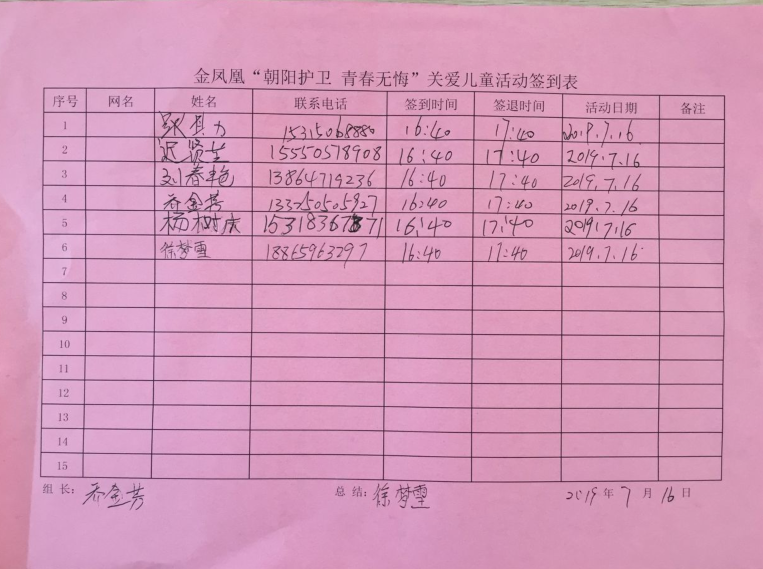 金凤凰“朝阳护卫 青春无悔”关爱儿童活动签到表
序号 网名 姓名 联系电话 签到时间 签退时间 活动日期 备注
1 张县力 15315068880 16:40 17:40 2019.7.16
2 迟贤芝 15550578908 16:40 17:40 2019.7.16
3 刘春艳 13864714236 16:40 17:40 2019.7.16
4 乔金芳 133750505927 16:40 17:40 2019.7.16
5 杨树庆 15318367871 16:40 17:40 2019.7.16
6 徐梦雪 18865963297 16:40 17:40 2019.7.16
7
8
9
10
11
12
13
14
15
组长：乔金芳 总结：徐梦雪 2019年7月16日